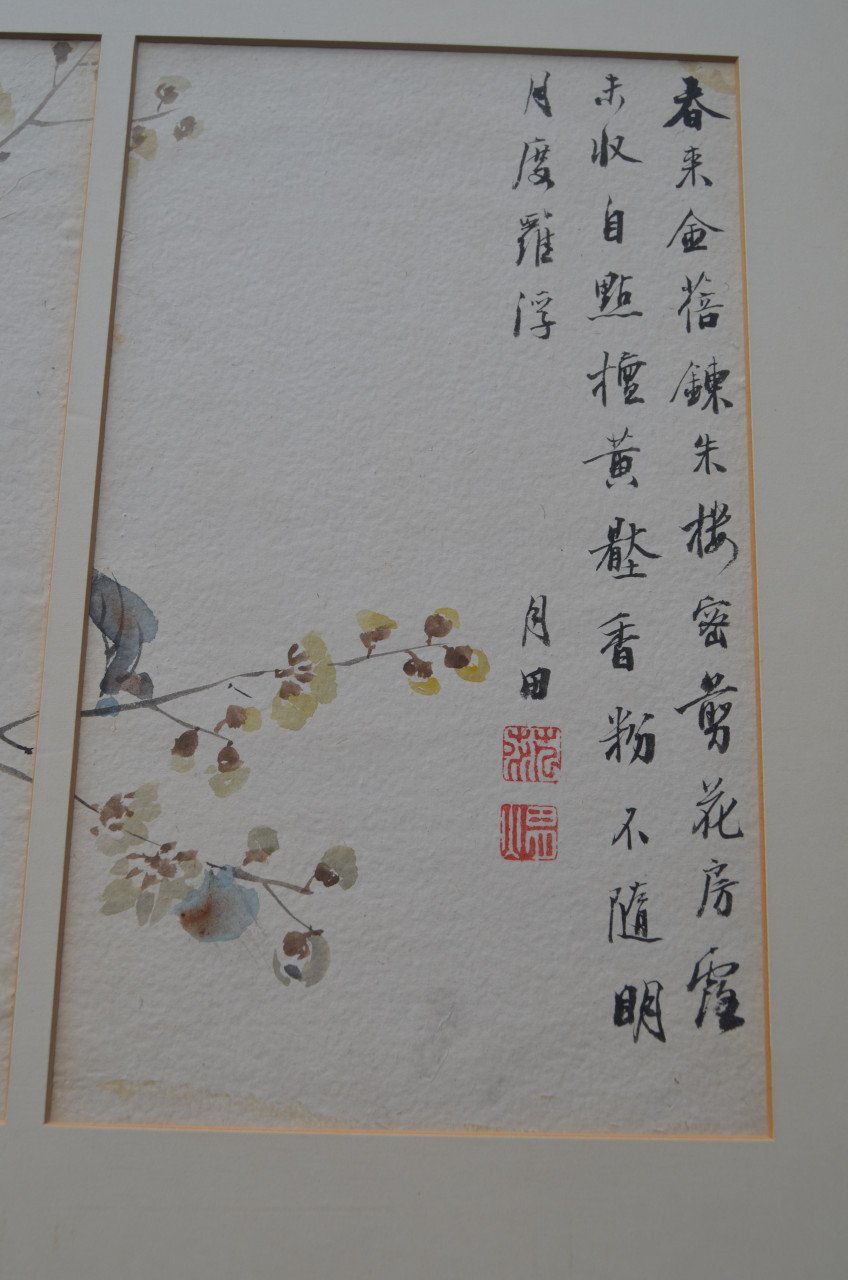 春来金蓓鍊朱楼密剪花房
未收自點檀黃香粉不隨明
月度羅浮
月田